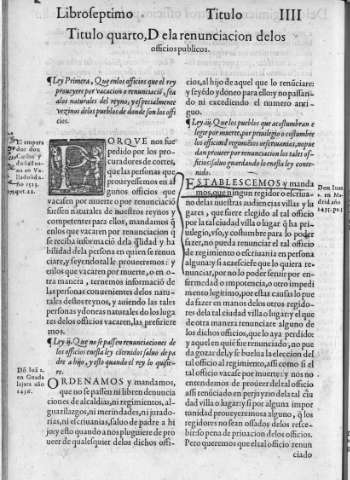 Libro septimo Titulo IIII
Titulo quarto, De la renunciacion de los
officios publicos.
¶ Ley Primera, Que en los officios que el rey
proueyere por vacacion e renunciació, sea
a los naturales del reyno, y especialmente
vezinos de los pueblos de donde son los offi
cios.
El empera
dor don
Carlos y
doña
PORQVE nos fue
pedido por los pro-
curadores de cortes,
que las personas que
proueyessemos en al
gunos officios que
vacassen por muerte o por renunciació
fuessen naturales de nuestros reynos y
competentes para ellos, mandamos q̃
en los que vacaren por renunciacion
se reciba informació dela q̃lidad y ha
bilidad dela persona en quien se renun
ciare, y seyendo tal le proueeremos: y
en los que vacaren por muerte, o en o-
tra manera, ternemos informació de
las personas conuenientes delos natu-
rales destos reynos, y auiendo las tales
personas ydoneas de los lugares
delos officios vacaren, las preferire
mos.
¶ Ley ij. Que no se passen renunciaciones de
los officios en esta ley cótenidos saluo de pa
dre a hijo, y esto quando el rey lo quisie-
re.
ORDENAMOS y mandamos,
que no se passen ni libren denuncia
ciones de alcaldias, ni regimientos, al-
guazilazgos, ni merindades, ni juradо-
rias, ni escriuanias, saluo de padre a hi
jo: y esto quando a nos pluguiere de pro
ueer de qualesquier delos dichos offi-
cios, al hijo de aquel que lo renũciare:
y seyédo ydoneo para ello: y no passan-
do ni excediendo el numero anti-
guo.
¶ Ley iij. Que los pueblos que acostumbran e
legir por muerte, por preuilegio o costumbre
los officios de regimientos o escriuanias, no pue
dan proueer por renunciacion los tales of-
ficios: saluo guardando lo en esta ley conte-
nido.
ESTABLESCEMOS y manda
mos, que ningun regidor o escriua-
no delas nuestras audiencias villas y lu
gares, que fuere elegido al tal officio
por la tal ciudad villa o lugar q̃ ha pri-
uilegio, vso, y costumbre para lo poder
fazer, no pueda renunciar el tal officio
de regimiento o escriuania en persona
alguna: y si acaesciere que lo quiera re-
nunciar, por no lo poder seruir por en-
fermedad o impotencia, o otro impedi
mento legitimo, por estas causas lo que
da fazer en manos delos otros regido-
res dela tal ciudad villa o lugar: y el que
de otra manera renunciare alguno de
los dichos officios, que lo aya perdido:
y aquel en quié fue renunciado, no pue
da gozar del, y se buelua la election del
tal officio al regimiento, assi como si el
tal officio vacasse por muerte: y nos no
entendemos de proueer del tal officio
assi renũciado en perjuyzio dela tal ciu
dad villa o lugar: y si por alguna impor
tunidad proueyeremos alguno, q̃ los
regidores no sean ossados delos resce-
bir, so pena de priuacion delos officios.
Pero queremos que el tal officio renun
ciado